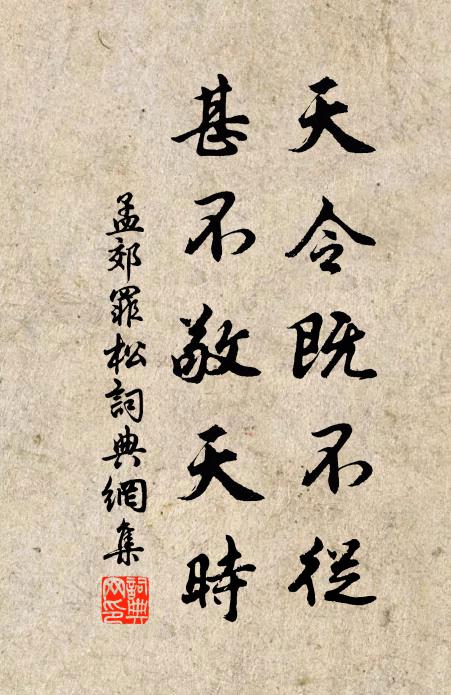 天令既不從
甚不敬天時
孟郊罪松詞典網集
詞典網印